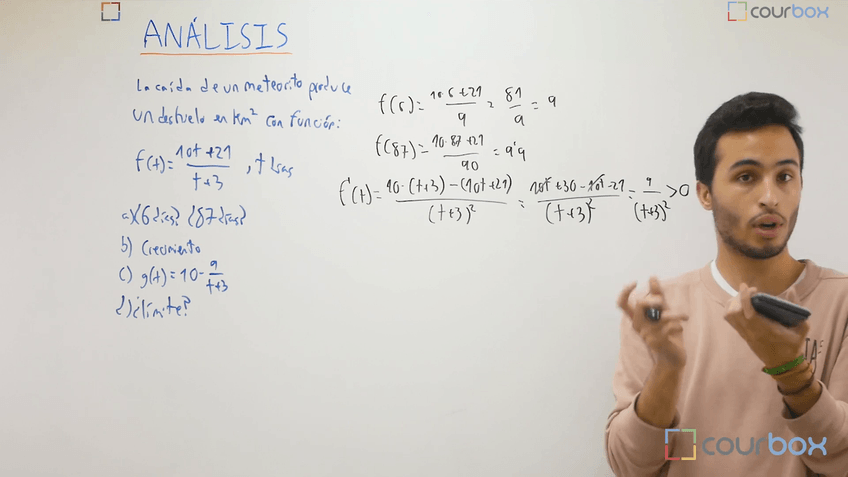 courbox
ANÁLISIS
La caída de un meteorito produce
un destuelo en Km² con función:
f(t) = 10t + 21 / t + 3 , t días
a) ¿6 días? ¿87 días?
b) Crecimiento
c) g(t) = 10 - 9 / t+3
d) ¿límite?
f(6) = 10·6 + 21 / 9 = 81 / 9 = 9
f(87) = 10·87 + 21 / 90 = 9'9
f'(t) = 10·(t+3) - (10t + 21) / (t+3)² = 10t + 30 - 10t - 21 / (t+3)² = 9 / (t+3)² > 0
courbox